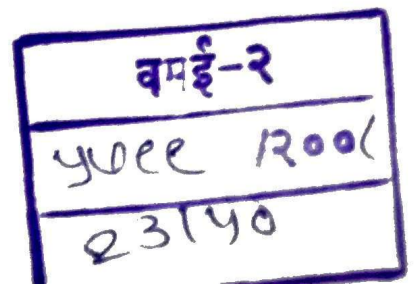 वसई-२
५७९९ /२००८
२३/५०